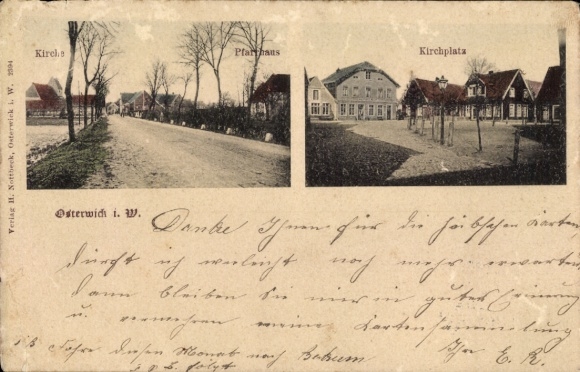 Kirche
Pfarrhaus
Kirchplatz
Verlag H. Nottbeck, Osterwick i. W. 2994
Osterwick i. W.
Danke Ihnen für die hübschen Karten,
dürft ich vielleicht noch mehr erwarten,
dann bleiben Sie mir in guter Erinnerung
u. vermehren meine Kartensammlung
Fahre diesen Monat nach Bochum Ihr E. R.
folgt